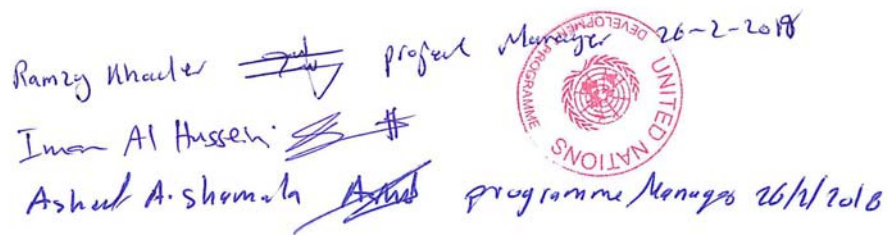 Ramzy Khader project Manager 26-2-2018
UNITED NATIONS DEVELOPMENT PROGRAMME
Iman Al Hussein
Ashraf A. shamala programme Manager 26/2/2018